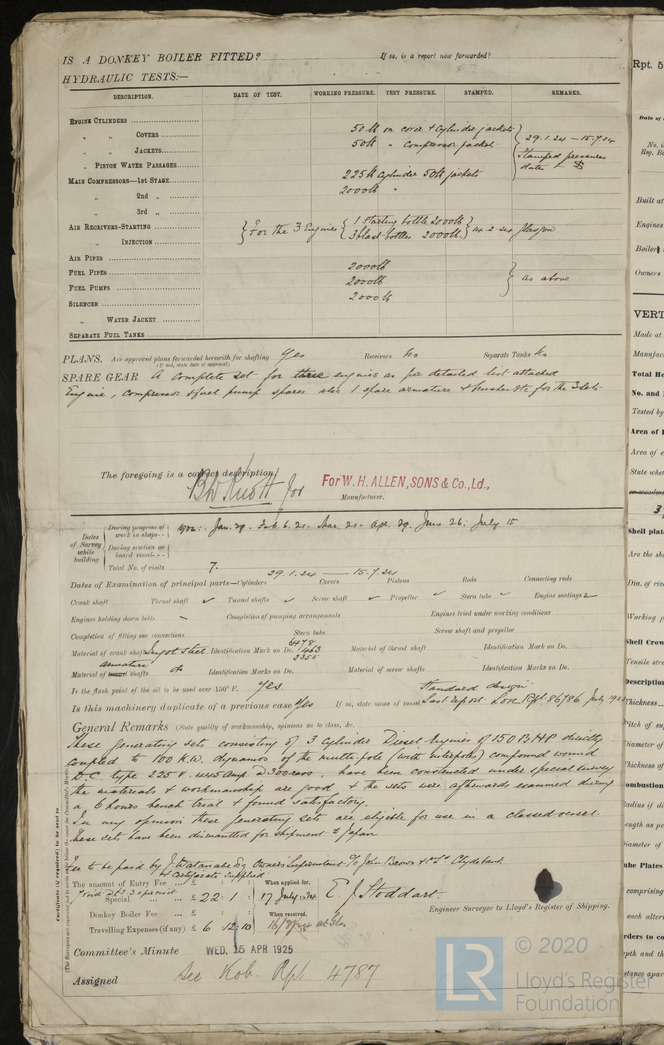 IS A DONKEY BOILER FITTED? If so, is a report now forwarded?
HYDRAULIC TESTS:—
DESCRIPTION. DATE OF TEST. WORKING PRESSURE. TEST PRESSURE. STAMPED. REMARKS.
ENGINE CYLINDERS
" " COVERS 50 lb on cover & cylinder jackets 29.1.24 — 15.7.24
" " JACKETS 50 lb " Compressor jackets Stamped pressures
" PISTON WATER PASSAGES dates
MAIN COMPRESSORS—1st STAGE 225 lb Cylinder 50 lb jackets
" 2nd " 2000 lb "
" 3rd "
AIR RECEIVERS—STARTING For the 3 Engines 1 Starting bottle 2000 lb
" INJECTION 3 blast bottles 2000 lb 14.2.24
AIR PIPES
FUEL PIPES 2000 lb
FUEL PUMPS 2000 lb as above
SILENCER 2000 lb
" WATER JACKET
SEPARATE FUEL TANKS
PLANS. Are approved plans forwarded herewith for shafting Yes Receivers No Separate Tanks No
(If not, state date of approval)
SPARE GEAR A complete set for three engines as per detailed list attached
Engine, compressor & fuel pump spares also 1 spare armature & brushes etc for the 3 sets
The foregoing is a correct description,
for For W. H. ALLEN, SONS & Co., Ld.,
Manufacturer.
Dates of Survey while building
During progress of work in shops-- 1924: Jan. 29. Feb. 6. 21. Mar. 21. Apr. 29. June 26. July 15
During erection on board vessel---
Total No. of visits 7.
Dates of Examination of principal parts—Cylinders 29.1.24 — 15.7.24 Covers Pistons Rods Connecting rods
Crank shaft Thrust shafts Tunnel shafts Screw shaft Propeller Stern tube Engine seatings
Engines holding down bolts Completion of pumping arrangements Engines tried under working conditions
Completion of fitting sea connections Stern tube Screw shaft and propeller
Material of crank shaft Ingot steel Identification Mark on Do. 6478 1463 2355 Material of thrust shaft Identification Mark on Do.
Material of armature shafts do Identification Marks on Do. Material of screw shafts Identification Marks on Do.
Is the flash point of the oil to be used over 150° F. Yes
Is this machinery duplicate of a previous case Yes If so, state name of vessel Standard design Last report Lon. Rpt. 86786 July
General Remarks (State quality of workmanship, opinions as to class, &c.
These generating sets consisting of 3 cylinder Diesel Engines of 150 BHP directly
coupled to 100 K.W. dynamos of the multi-pole (with interpoles) compound wound
D.C. type 225 V. 445 Amp D 300 revs. have been constructed under special survey
the materials & workmanship are good & the sets were afterwards examined during
a 6 hours bench trial & found satisfactory.
In my opinion these generating sets are eligible for use in a classed vessel.
These sets have been dismantled for shipment to Japan
Fee to be paid by J. Watanabe Esq Owners Superintendent c/o John Brown & Co Ld Clydebank
& Certificate supplied
The amount of Entry Fee ... £ : : When applied for,
Special ... £ 22 : 1 : 17 July 1924 E. J. Stoddart.
Donkey Boiler Fee ... £ : : When received, Engineer Surveyor to Lloyd's Register of Shipping.
Travelling Expenses (if any) £ 6 : 12 : 10
Committee's Minute WED. 15 APR 1925
Assigned See Kob. Rpt 4787
Certificate (if required) to be sent to
(The Surveyors are requested not to write on or below the space for Committee's Minute.)
Rpt. 5
Date of
No. in
Reg. Bo
Built at
Engines
Boilers
Owners
VERT
Made at
Manufac
Total He
No. and
Tested by
Area of
Area of
State whet
Shell plat
Are the
Dia. of riv
Working p
Shell Crow
Tensile stre
Description
Thickness
Pitch of
Diameter of
Thickness of
ombustion
Radius if di
ength as pe
Diameter of
ube Plates
comprising
each altern
rders to co
epth and th
stance apar
LR © 2020
Lloyd's Register
Foundation